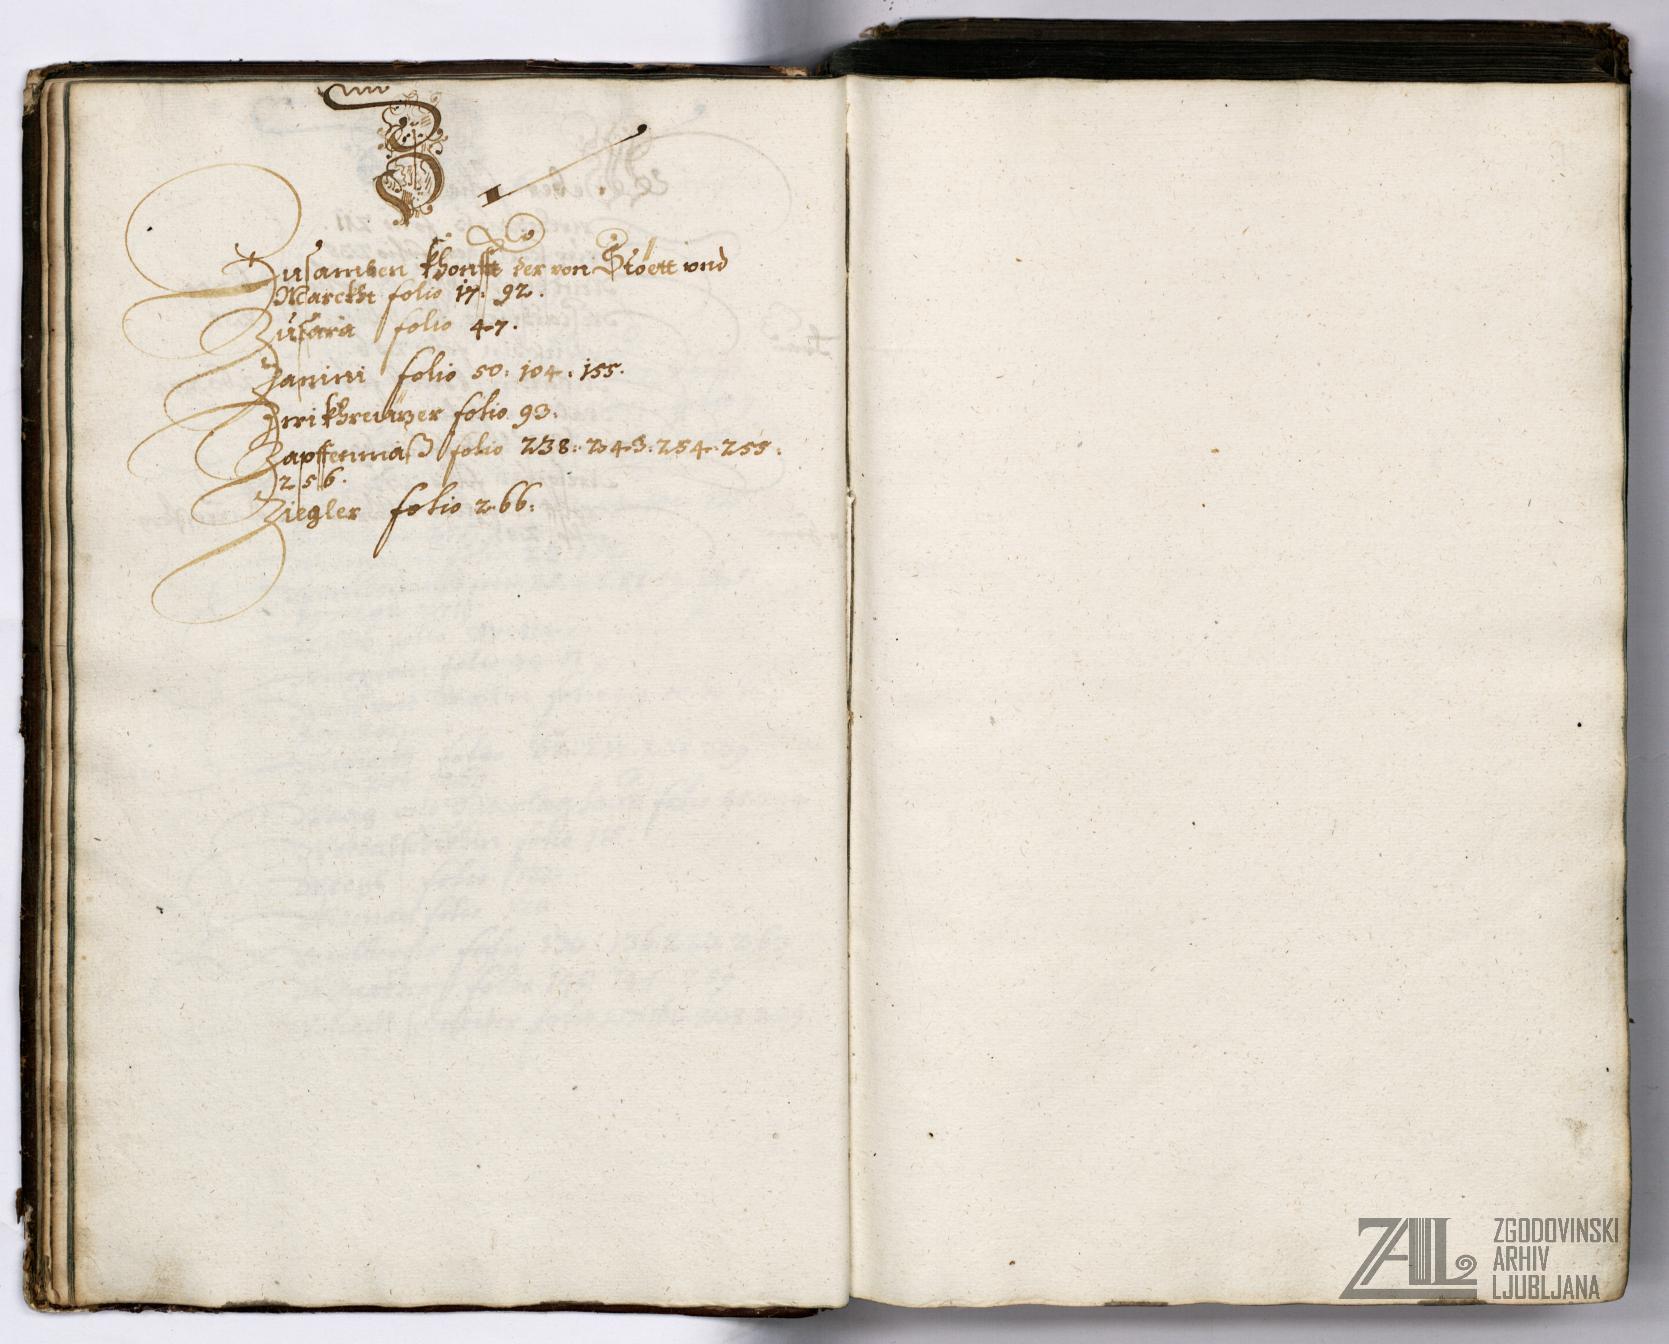 Z
Zusamben khonfft der von Stöett vnd
Marckht folio 17. 92.
Zusara folio 47.
Zanini folio 50. 104. 155.
folio 93.
Zapffenmaß folio 238. 243. 254. 255.
256.
Ziegler folio 266.
ZAL ZGODOVINSKI
ARHIV
LJUBLJANA